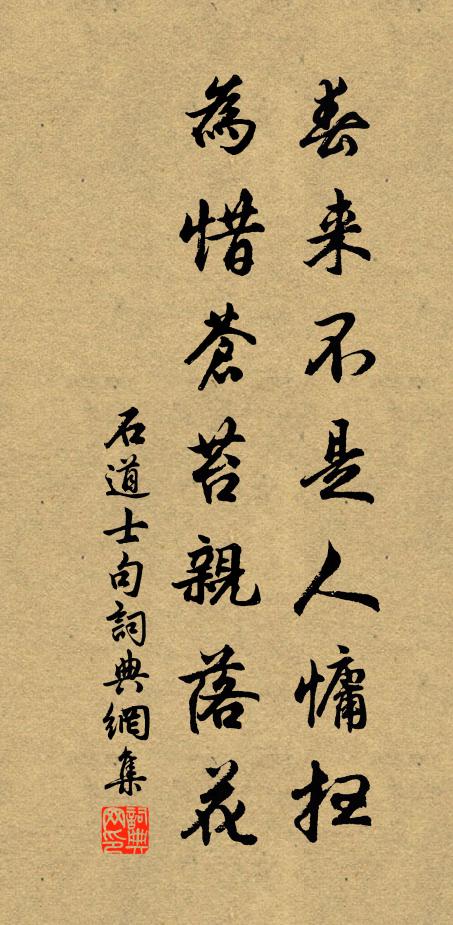 春来不是人慵扫
為惜蒼苔親落花
石道士句詞典網集
詞典網印